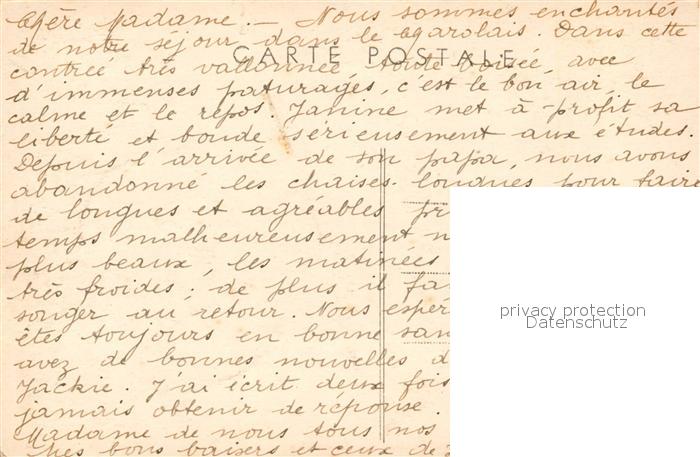 Chère Madame. — Nous sommes enchantés
de notre séjour dans le Charolais. Dans cette
CARTE POSTALE
contrée très vallonnée, toute boisée, avec
d'immenses paturages, c'est le bon air, le
calme et le repos. Janine met à profit sa
liberté et boude sérieusement aux études.
Depuis l'arrivée de son papa, nous avons
abandonné les chaises-longues pour faire
de longues et agréables
temps malheureusement
plus beaux, les matinées
très froides; de plus il
songer au retour. Nous
êtes toujours en bonne
avez de bonnes nouvelles
Jackie. J'ai écrit deux fois
jamais obtenir de réponse.
Madame de nous tous nos
bons baisers et ceux de
privacy protection
Datenschutz